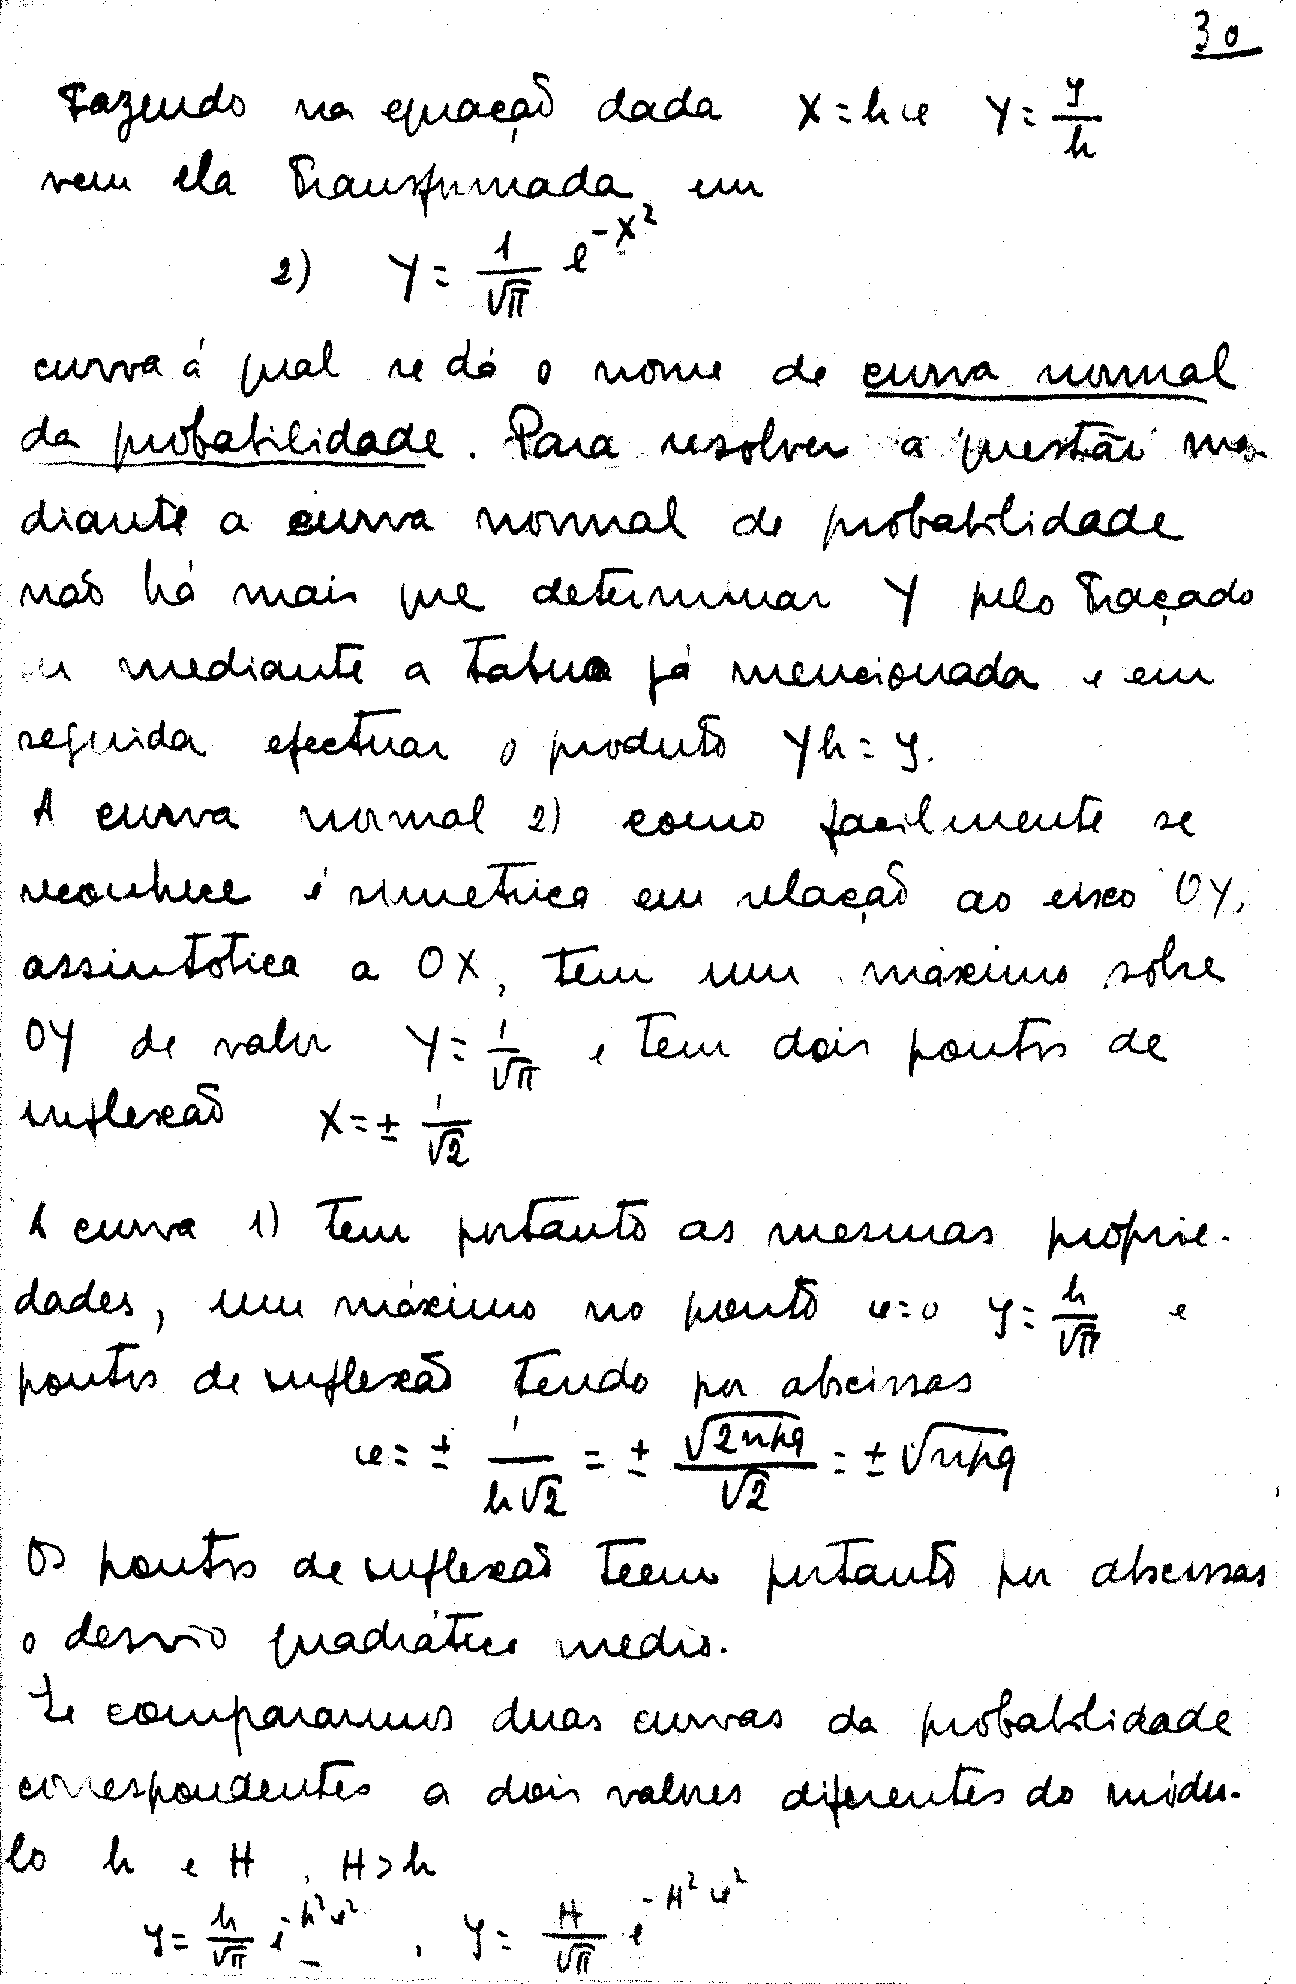 30
Fazendo na equação dada X = hx Y = y/h
vem ela transformada em
2) Y = 1/√π e^(-X²)
curva á qual se dá o nome de curva normal
da probabilidade. Para resolver a questão me-
diante a curva normal de probabilidade
não há mais que determinar Y pelo traçado
ou mediante a tabua já mencionada e em
seguida efectuar o produto Yh = y.
A curva normal 2) como facilmente se
reconhece é simetrica em relação ao eixo OY,
assintótica a OX, tem um máximo sôbre
OY de valor Y = 1/√π e tem dois pontos de
inflexão X = ± 1/√2
A curva 1) tem portanto as mesmas proprie-
dades, um máximo no ponto x=0 y = h/√π e
pontos de inflexão tendo por abscissas
x = ± 1/(h√2) = ± √(2npq)/√2 = ± √(npq)
Os pontos de inflexão teem portanto por abscissas
o desvio quadrático medio.
Se compararmos duas curvas da probabilidade
correspondentes a dois valores diferentes do módu-
lo h e H, H > h
y = h/√π e^(-h²x²), y = H/√π e^(-H²x²)